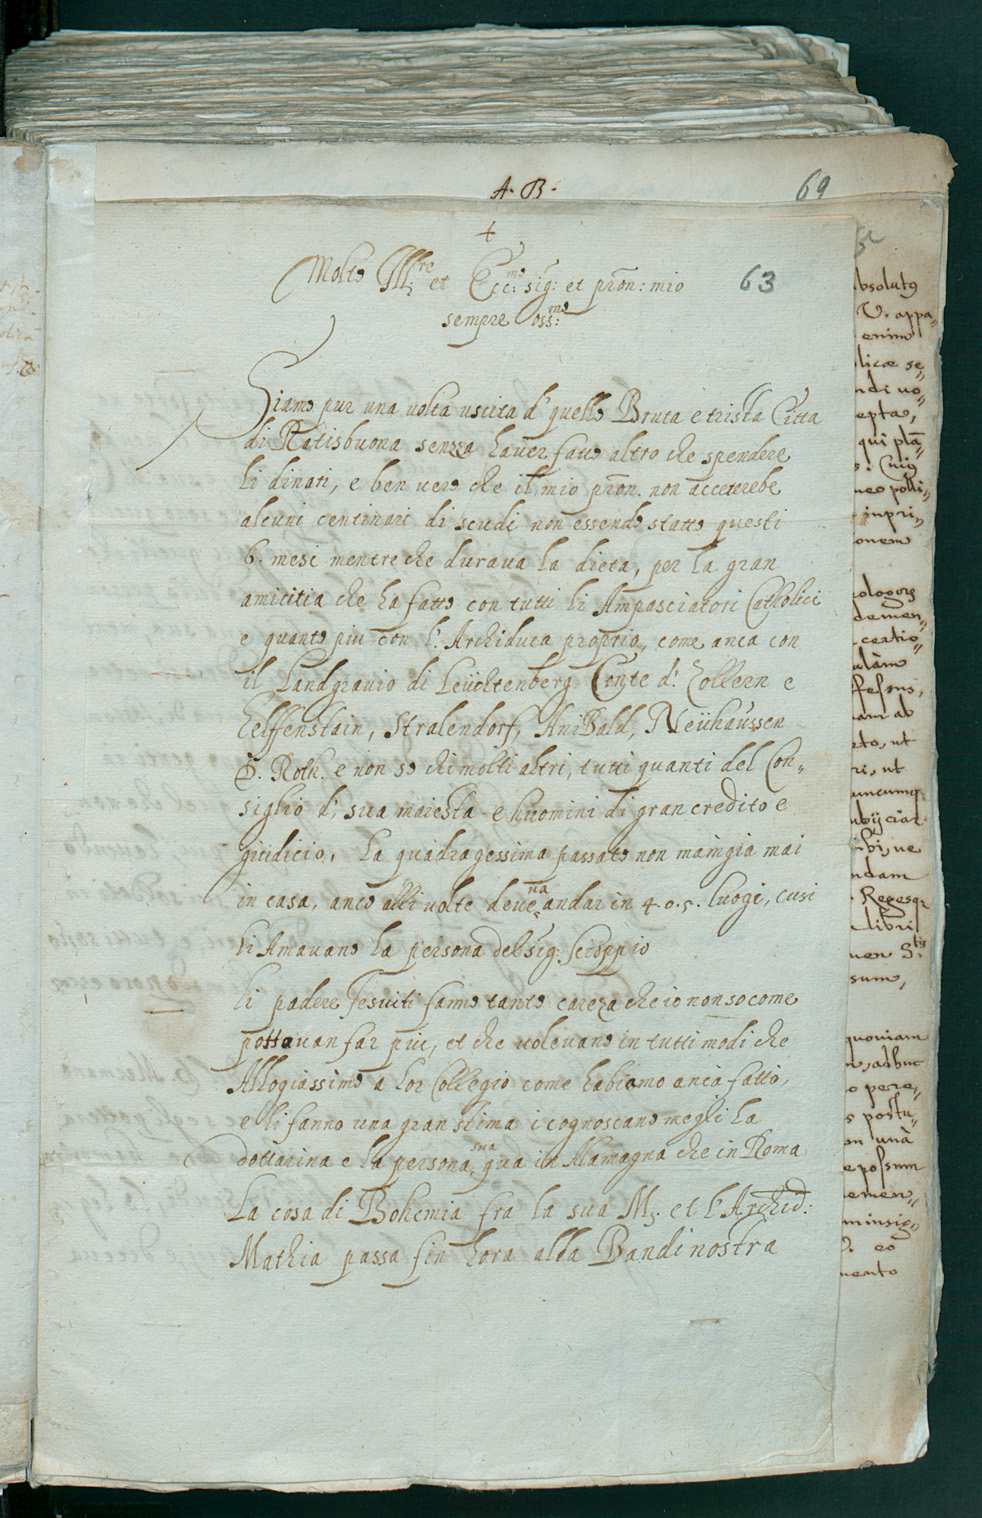 A. B.
69
+
Molto Ill.re et Ecc.mo sig: et pron: mio
63
sempre oss:mo
Siamo pur una volta uscita d' quello Bruta e trista Citta
di Ratisbuona senzza haver fatto altro che spendere
li dinari, e ben vero che il mio pron. non acceterebe
alcuni centinari di scudi non essendo statto questi
6. mesi mentre che durava la dieta, per la gran
amicitia che ha fatto con tutti li Ampasciatori Catholici
e quanto piu con l'. Archiduca proprio, come anca con
il Landgravio di Leüchtenberg, Conte d'. Zollern e
Helffenstain, Stralendorf, AniBald, Neühaussen
D. Roth. e non so chi molti altri, tutti quanti del Con„
siglio d', sua maiesta e huomini di gran credito e
giudicio, La quadragessima passato non mamgia mai
in casa, anco alli volte deveva andar in 4. o. 5. luogi, cusi
li Amavano la persona del sig: Scioppio
li padere Jesuiti fanno tanto careza che io non so come
pottavan far piu, et che volevano in tutti modi che
Allogiassimo a lor Collegio come habiamo anca fatto,
e li fanno una gran stima i cognoscano megli la
dottarina e la persona sua qua in Alamagna che in Roma
La cosa di Bohemia fra la sua M. et l'Archid:
Mathia passa fin hora alla Bandi nostra
absolutꝰ
V. appa„
enim
licæ se„
ndi vo„
epta,
qui plā„
: Cuiꝰ
neo polli„
inpri„
onem
ologorꝰ
demen„
certio„
alàm
am ab
to, ut
ri, ut
uncumq
ubijciar
ibi, ne
ndam
Regesqꝫ
libri
uen S.tis
sum,
quoniam
adhuc
o pere„
s postu„
on unâ
epossum
emen„
minsig„
V. eo
mento